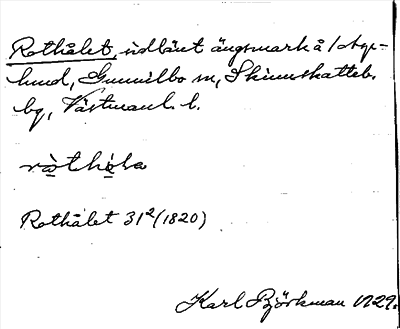 Rothålet, sidlänt ängsmark å
hund, Gunnilbo sn, Skinnskatteb.
bg, Västmanl. l.
ròthòla
Rothålet 31² (1820)
Karl Björkman 1929.